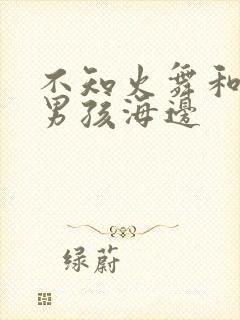 不知火舞和
男孩海邊
绿蔚